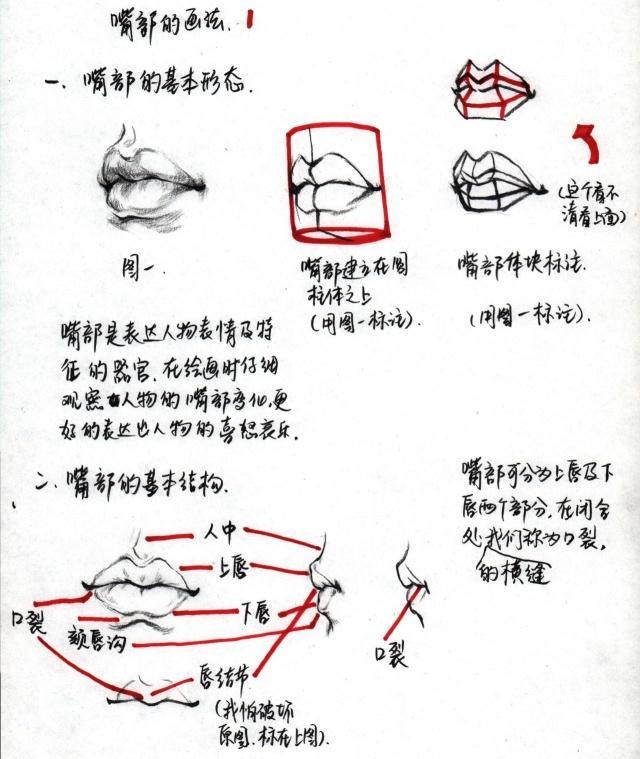 嘴部的画法. 1
一、嘴部的基本形态.
图一.
嘴部建立在圆
柱体之上
(用图一标注).
嘴部体块标法.
(用图一标注).
(这个看不
清看上面)
嘴部是表达人物表情及特
征的器官.在绘画时仔细
观察人物的嘴部变化.更
好的表达出人物的喜怒哀乐.
二、嘴部的基本结构.
嘴部可分为上唇及下
唇两个部分,在闭合
处我们称为口裂.
的横缝
人中
上唇
下唇
口裂
颏唇沟
唇结节
(我怕破坏
原图.标在上图).
口裂